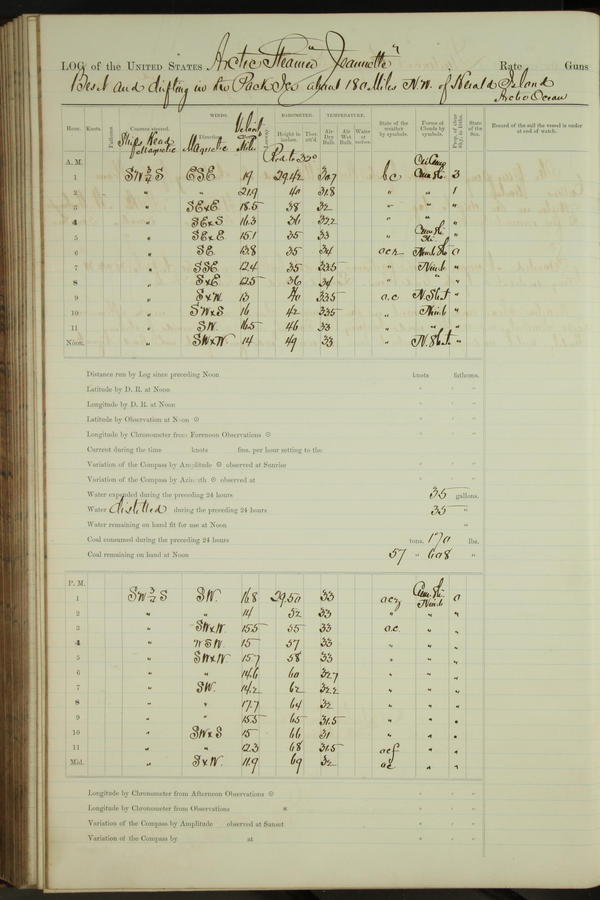 LOG of the UNITED STATES Arctic Steamer "Jeannette" Rate Guns
Beset and drifting in the Pack Ice about 180 Miles N.W. of Herald Island
Arctic Ocean
Hour. Knots. Fathoms. Courses steered. WINDS. BAROMETER. TEMPERATURE. State of the weather by symbols. Forms of Clouds by symbols. State of the Sea. Record of the sail the vessel is under at end of watch.
Ships Head Magnetic Direction Magnetic Height in inches. Ther. att'd. Air Dry Bulb. Air Wet Bulb. Water at surface.
Red to 32°
A. M.
1 SW 3/4 S ESE 19 29.42 30.7 bc Cum. Sti. 3
2 " " 21.9 40 31.8 " " 1
3 " SExE 18.5 38 32 " " "
4 " SExS 16.3 36 32.2 " " "
5 " SExE 15.1 35 33 " Cum. Sti. "
6 " SE 13.8 35 34 0
7 " SSE 12.4 35 33.5 " Nimb "
8 " SxE 12.5 36 34 " " "
9 " SxW. 13 40 33.5 o.c. N. Strat "
10 " SWxS 16 42 33.5 " Nimb "
11 " SW. 16.5 46 33 " " "
Noon. " SWxW 14 49 33 " N. Strat. "
Distance run by Log since preceding Noon knots fathoms.
Latitude by D. R. at Noon
Longitude by D. R. at Noon
Latitude by Observation at Noon ⊙
Longitude by Chronometer from Forenoon Observations ⊙
Current during the time knots fms. per hour setting to the
Variation of the Compass by Amplitude ⊙ observed at Sunrise
Variation of the Compass by Azimuth ⊙ observed at
Water expended during the preceding 24 hours 35 gallons.
Water distilled during the preceding 24 hours 35 "
Water remaining on hand fit for use at Noon "
Coal consumed during the preceding 24 hours tons. 170 lbs.
Coal remaining on hand at Noon 57 " 608 "
P. M.
1 SW 3/4 S SW. 16.8 29.50 33 Cum. Sti. Nimb 0
2 " " 14 52 33 " " "
3 " SWxW. 15.5 55 33 o.c. " "
4 " WSW. 15 57 33 " " "
5 " SWxW. 15.7 58 33 " " "
6 " " 14.6 60 32.7 " " "
7 " SW. 14.2 62 32.2 " " "
8 " " 17.7 64 32 " " "
9 " " 15.5 65 31.5 " " "
10 " SWxS 15 66 31 " " "
11 " " 12.3 68 31.5 ocf " "
Mid. " SxW. 11.9 69 32 oc " "
Longitude by Chronometer from Afternoon Observations ⊙
Longitude by Chronometer from Observations *
Variation of the Compass by Amplitude observed at Sunset
Variation of the Compass by at